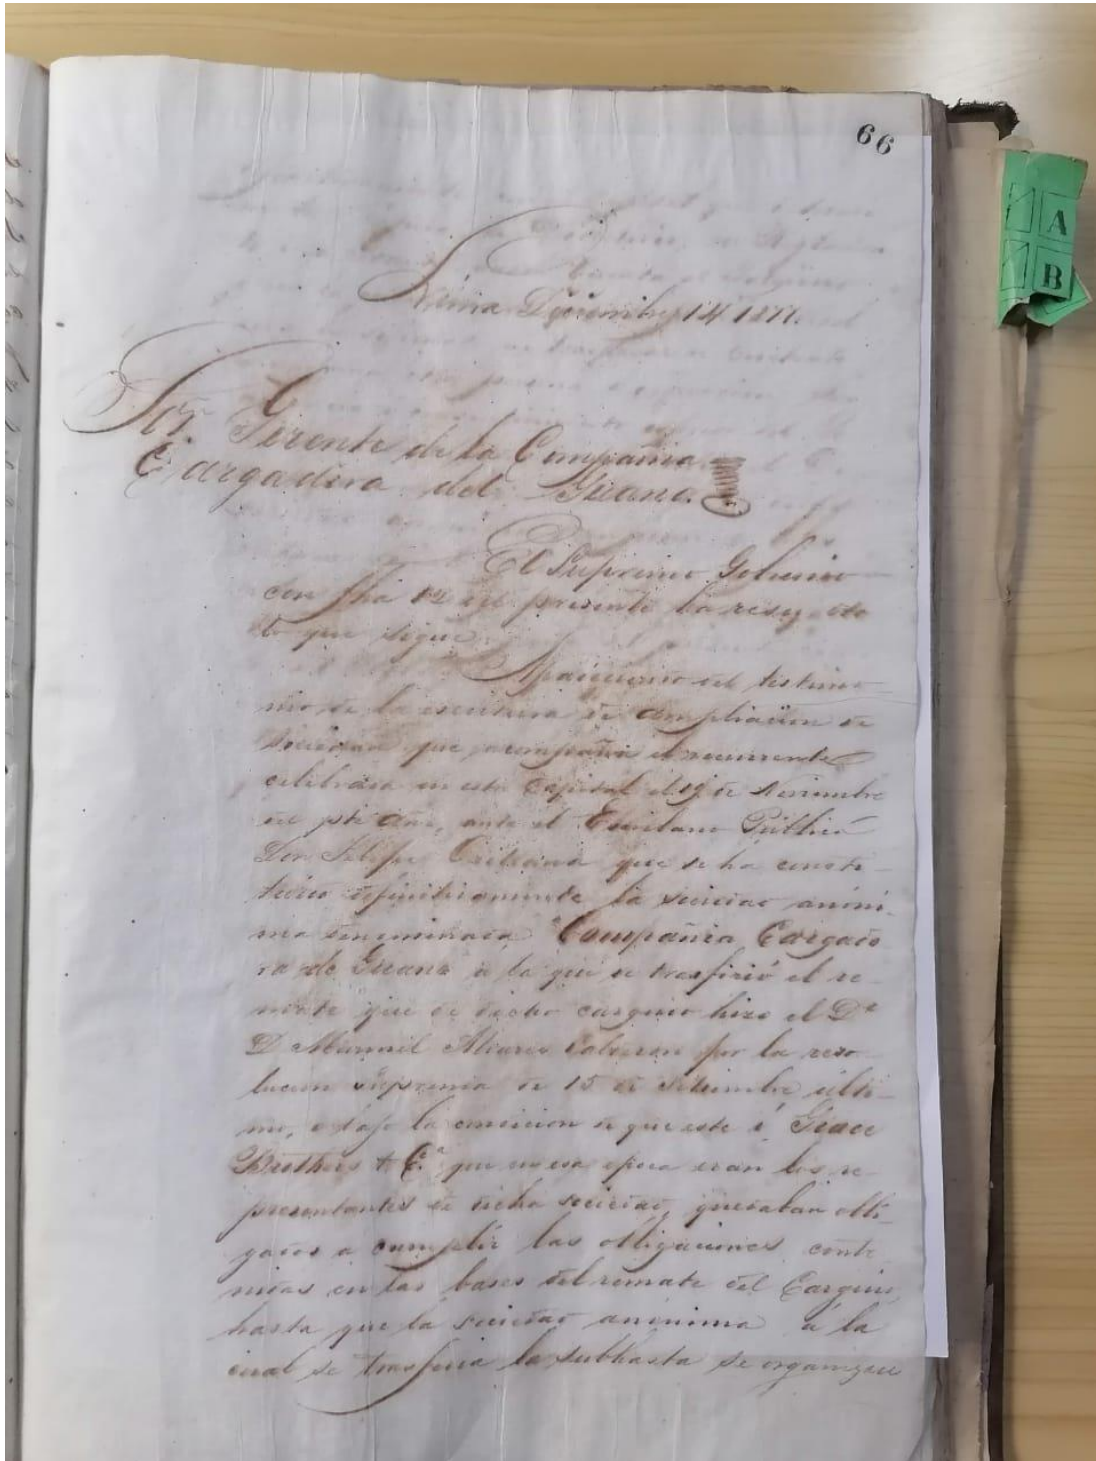 66
Lima Diciembre 14 1877.
Sor. Gerente de la Compañia
Cargadora del Guano.
El Supremo Gobierno
con fha 12 del presente ha resuelto
lo que sigue
Apareciendo del testimo-
nio de la escritura de ampliacion de
sociedad que acompaña el recurrente
celebrada en esta Capital el 19 de Noviembre
del pste año, ante el Escribano Público
Don Felipe que se ha consti-
tuido definitivamente la sociedad anóni-
ma denominada "Compañia Cargado
ra de Guano" a la que se trasfirió el re-
mate que de dicho carguio hizo el Dr
D Manuel Alvarez Calderon por la reso-
lucion suprema de 15 de Setiembre últi-
mo, bajo la condicion de que este i Grace
Brothers & Ca. que en esa epoca eran los re-
presentantes de dicha sociedad, quedaban obli-
gados a cumplir las obligaciones conte-
nidas en las bases del remate del Carguio,
hasta que la sociedad anónima á la
cual se trasferia la subhasta se organizase
A
B